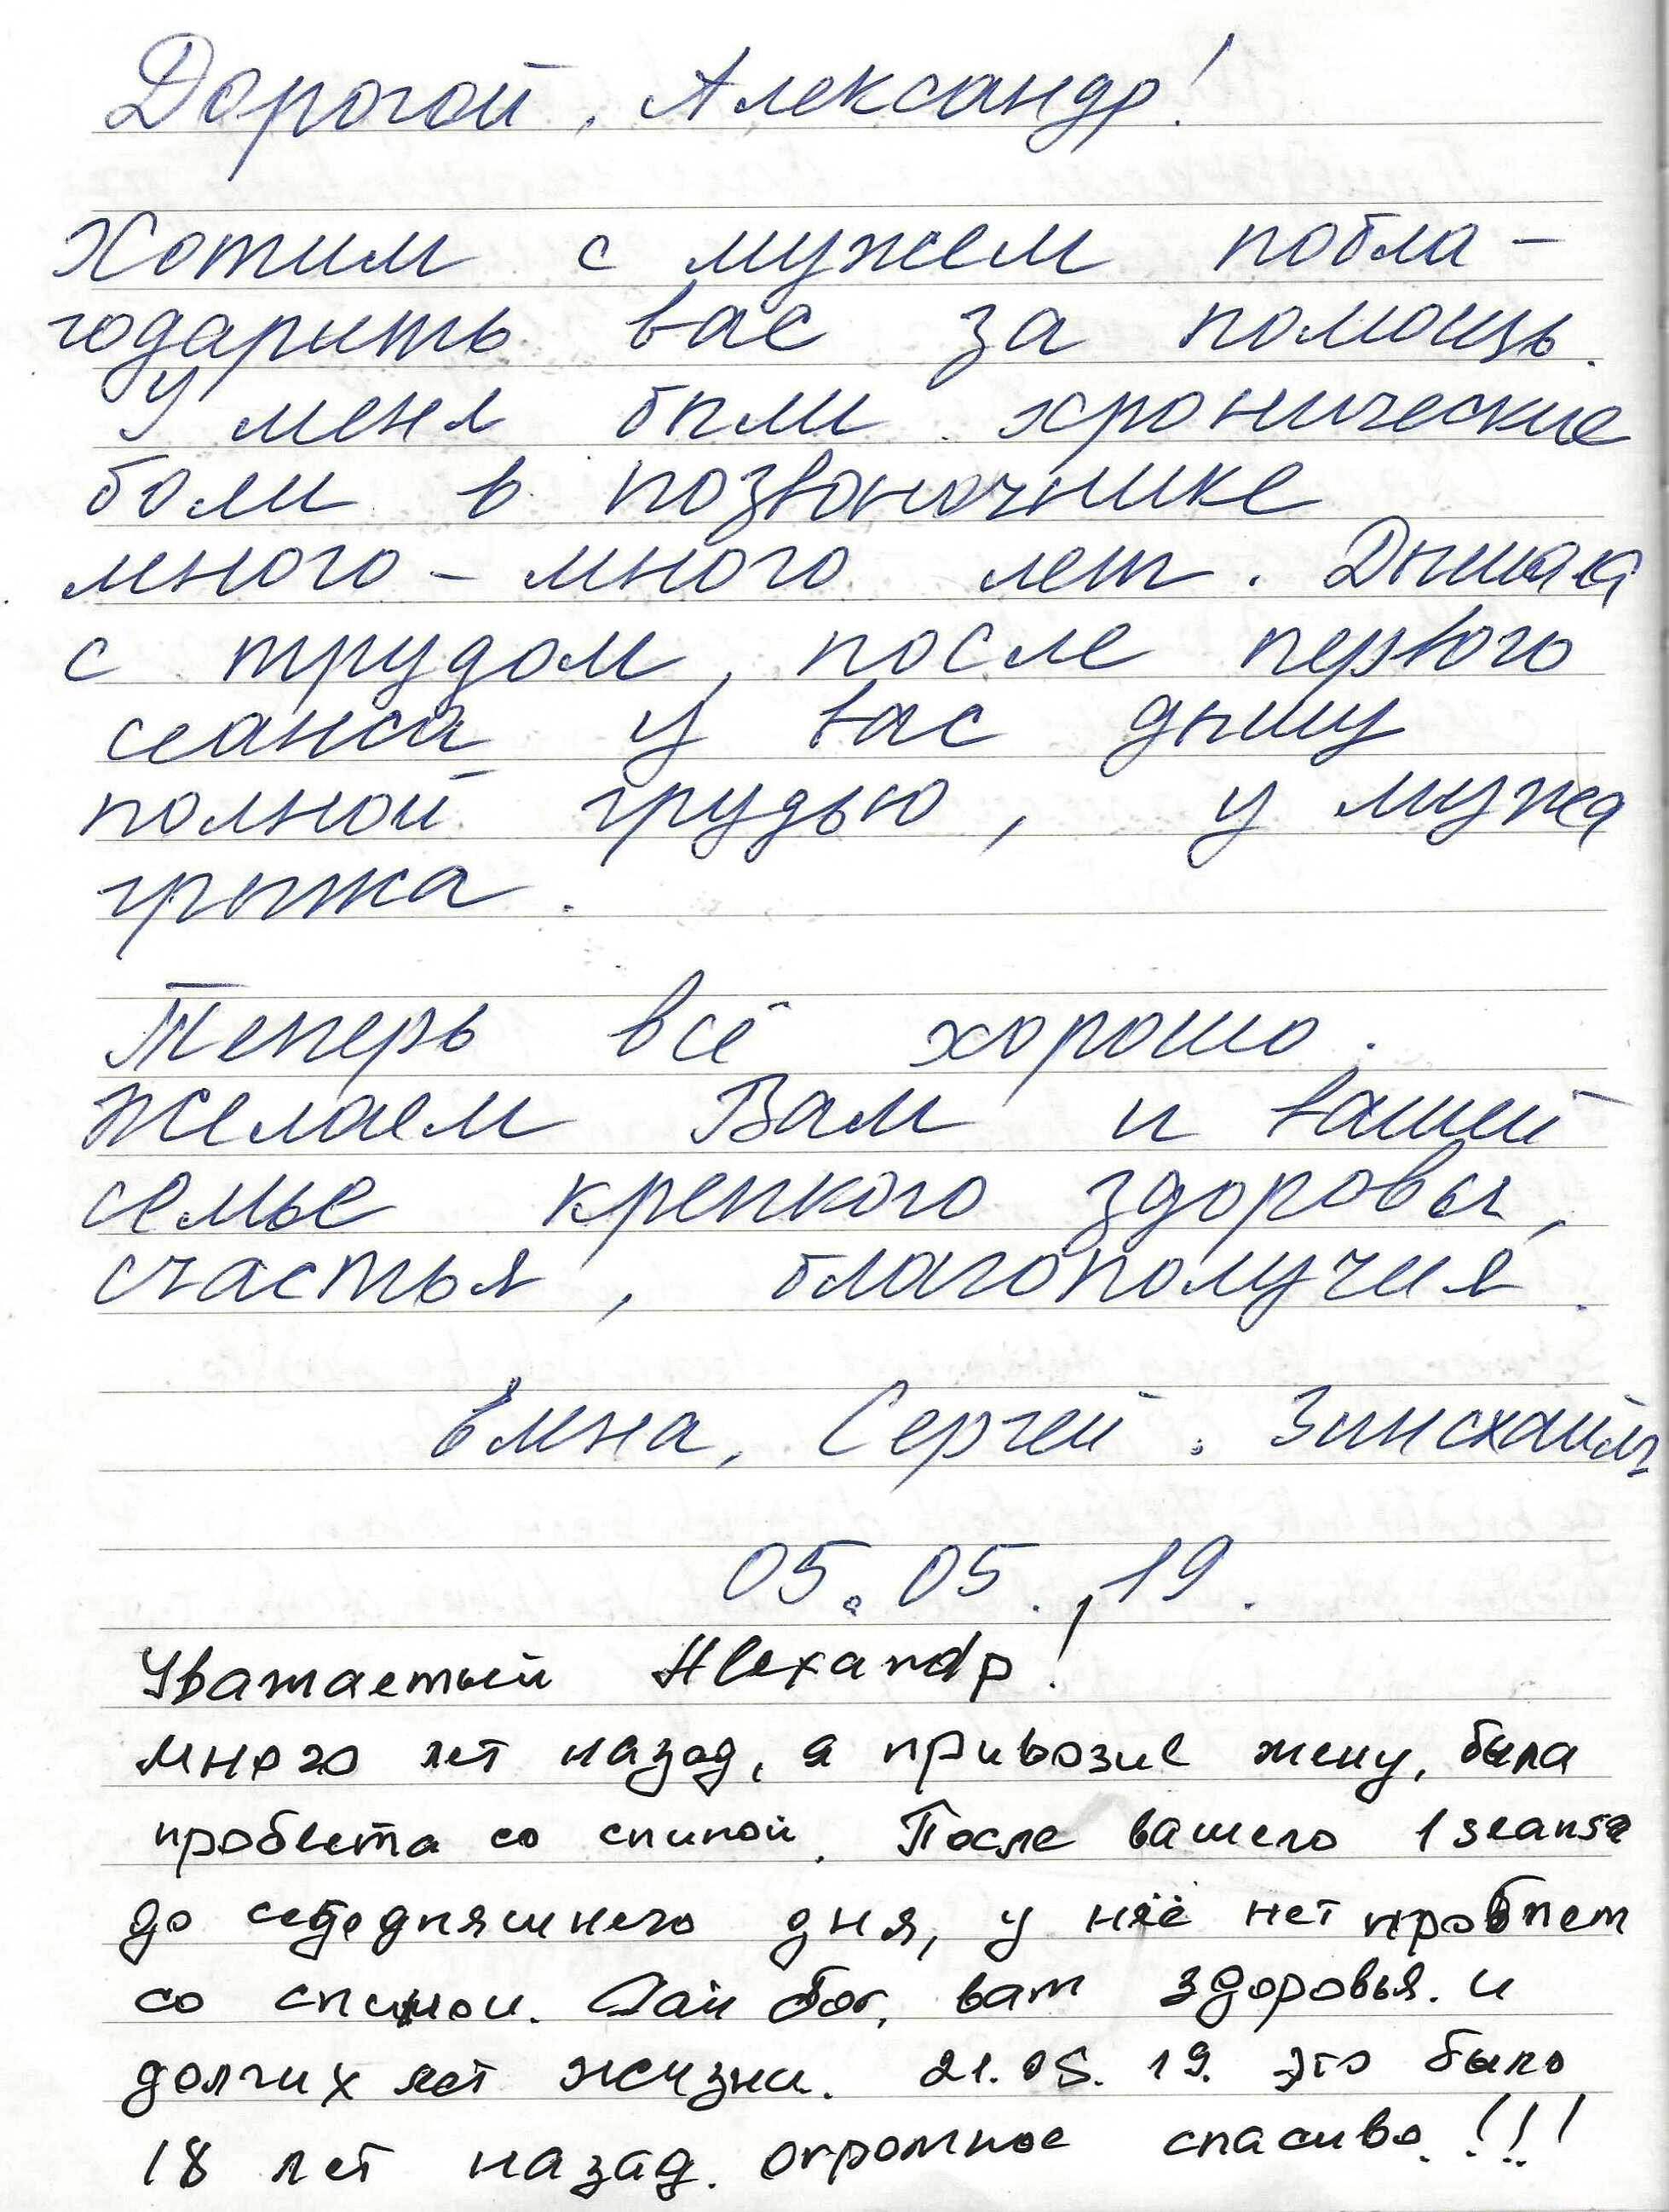 Дорогой, Александр!
Хотим с мужем побла-
годарить вас за помощь.
У меня были хронические
боли в позвоночнике
много-много лет. Дышала
с трудом, после первого
сеанса у вас дышу
полной грудью, у мужа
грыжа.
Теперь всё хорошо.
Желаем Вам и вашей
семье крепкого здоровья,
счастья, благополучия.
Елена, Сергей. Зинсхайм
05.05.19.
Уважаемый Alexandр!
Много лет назад, я привозил жену, была
проблема со спиной. После вашего 1 seansa
до сегодняшнего дня, у неё нет проблем
со спиной. Дай бог, вам здоровья. и
долгих лет жизни. 21.05.19. это было
18 лет назад. огромное спасиво.!!!